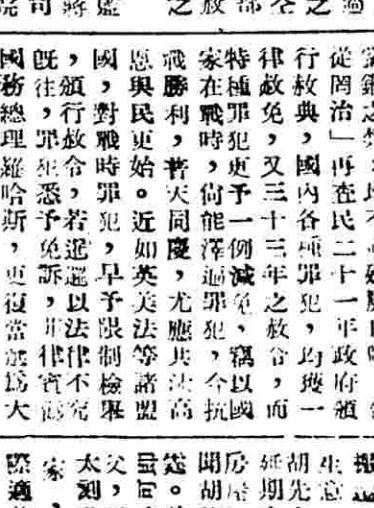 之
部
之
從罔治」再查民二十一年政府頒
行赦典，國內各種罪犯，均獲一
律赦免，又三十三年之赦令，而
特種罪犯更予一例減免，竊以國
家在戰時，尙能澤遍罪犯，今抗
戰勝利，普天同慶，尤應共沾高
恩與民更始。近如英美法等諸盟
國，對戰時罪犯，早予限制檢舉
，頒行赦令，若暹邏以法律不究
既往，罪犯悉予免訴，菲律賓前
國務總理羅哈斯，更復當選爲大
生意
胡先
延期
房屋
聞胡
父，
太到
家，
際適